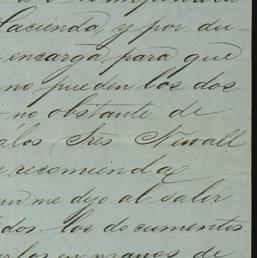 Hacienda, y por du-
encarga para que
no pueden los dos
no obstante de
a los Tres Newall
recomienda
me dijo al salir
dos los documentos
manos de